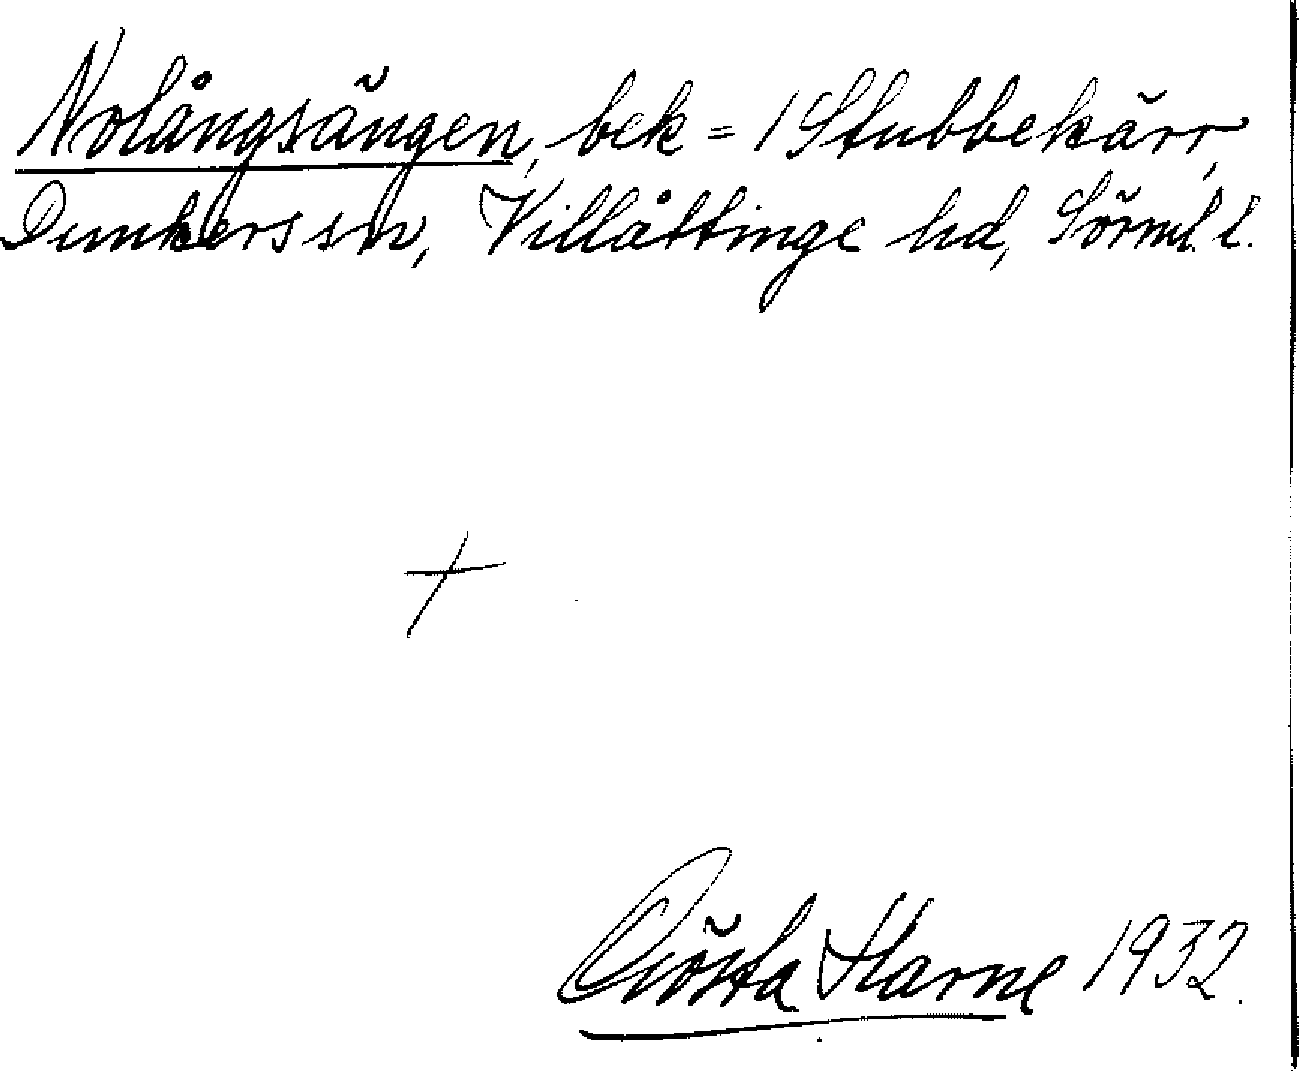 Nolångsängen, bek = 1 Stubbekärr,
Dunkers sn, Villåttinge hd, Sörml. l.
+
Gösta Harne 1932.